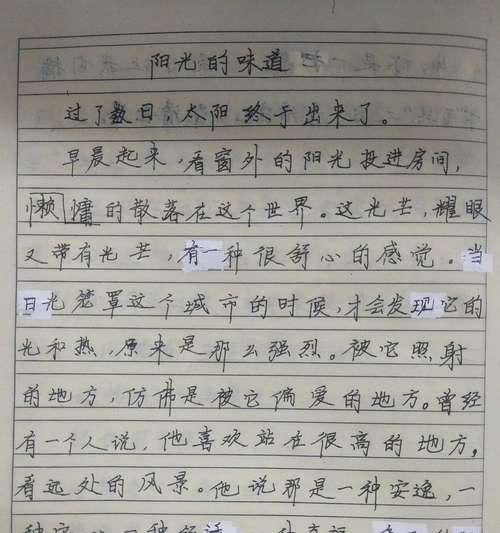 阳光的味道
过了数日,太阳终于出来了。
早晨起来,看窗外的阳光投进房间,
懒慵的散落在这个世界。这光芒,耀眼
又带有光芒,有一种很舒心的感觉。当
日光笼罩这个城市的时候,才会发现它的
光和热,原来是那么强烈。被它照射
的地方,仿佛是被它偏爱的地方。曾经
有一个人说,他喜欢站在很高的地方,
看远处的风景。他说那是一种安逸,一